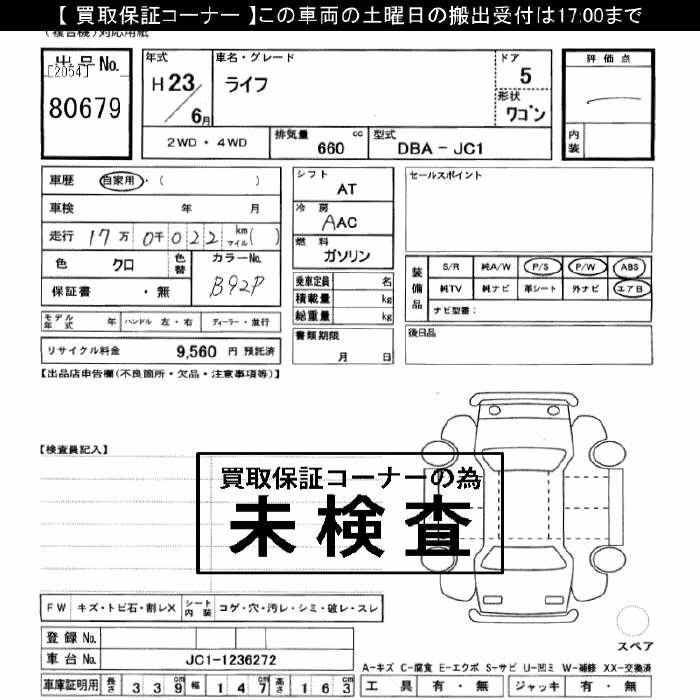 【 買取保証コーナー 】この車両の土曜日の搬出受付は17:00まで
(複合機)対応用紙
出品No.
[2054]
80679
年式
H23/6月
車名・グレード
ライフ
ドア
5
形状
ワゴン
2WD・4WD
排気量 660 cc
型式 DBA-JC1
評価点
内装
車歴 自家用・( )
車検 年 月
走行 17万0千022 km マイル( )
色 クロ
色替
カラーNo. B92P
保証書 ・ 無
モデル年式 年 ハンドル 左・右 ディーラー・並行
リサイクル料金 9,560 円 預託済
シフト
AT
冷房
AAC
燃料
ガソリン
乗車定員 名
積載量 kg
総重量 kg
書類期限
月 日
セールスポイント
装備品
S/R 純A/W P/S P/W ABS
純TV 純ナビ 革シート 外ナビ エアB
ナビ型番:
後日品
【出品店申告欄(不良箇所・欠品・注意事項等)】
【検査員記入】
買取保証コーナーの為
未検査
FW キズ・トビ石・割レX シート内装 コゲ・穴・汚レ・シミ・破レ・スレ
登録 No.
車台 No. JC1-1236272
車庫証明用 長さ 339cm 幅 147cm 高さ 163cm
スペア
A-キズ C-腐食 E-エクボ S-サビ U-凹ミ W-補修 XX-交換済
工具 有・無 ジャッキ 有・無